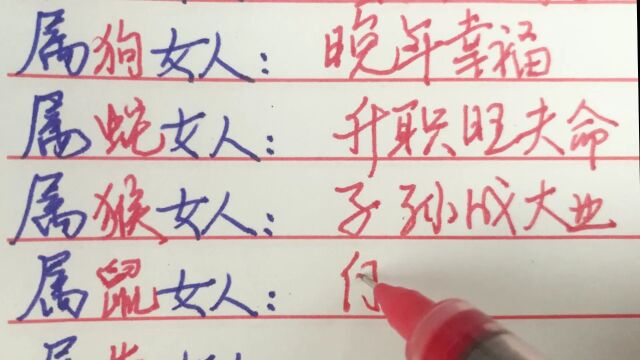 属狗女人：晚年幸福
属蛇女人：升职旺夫命
属猴女人：子孙成大业
属鼠女人：